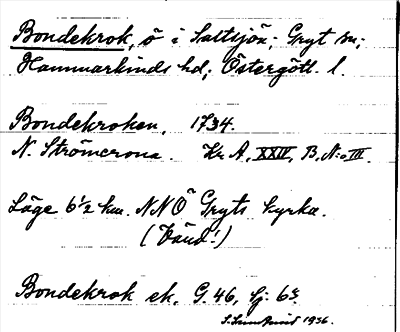 Bondekrok, ö i Saltsjön; Gryt sn;
Hammarkinds hd; Östergötl. l.
Bondekroken, 1734.
N. Strömcrona. Kr. A, XXIV, B, N:o III.
Läge 6 1/2 km. NNÖ Gryts kyrka.
(Vänd!)
Bondekrok ek. G. 46, Sj. 63.
1936.